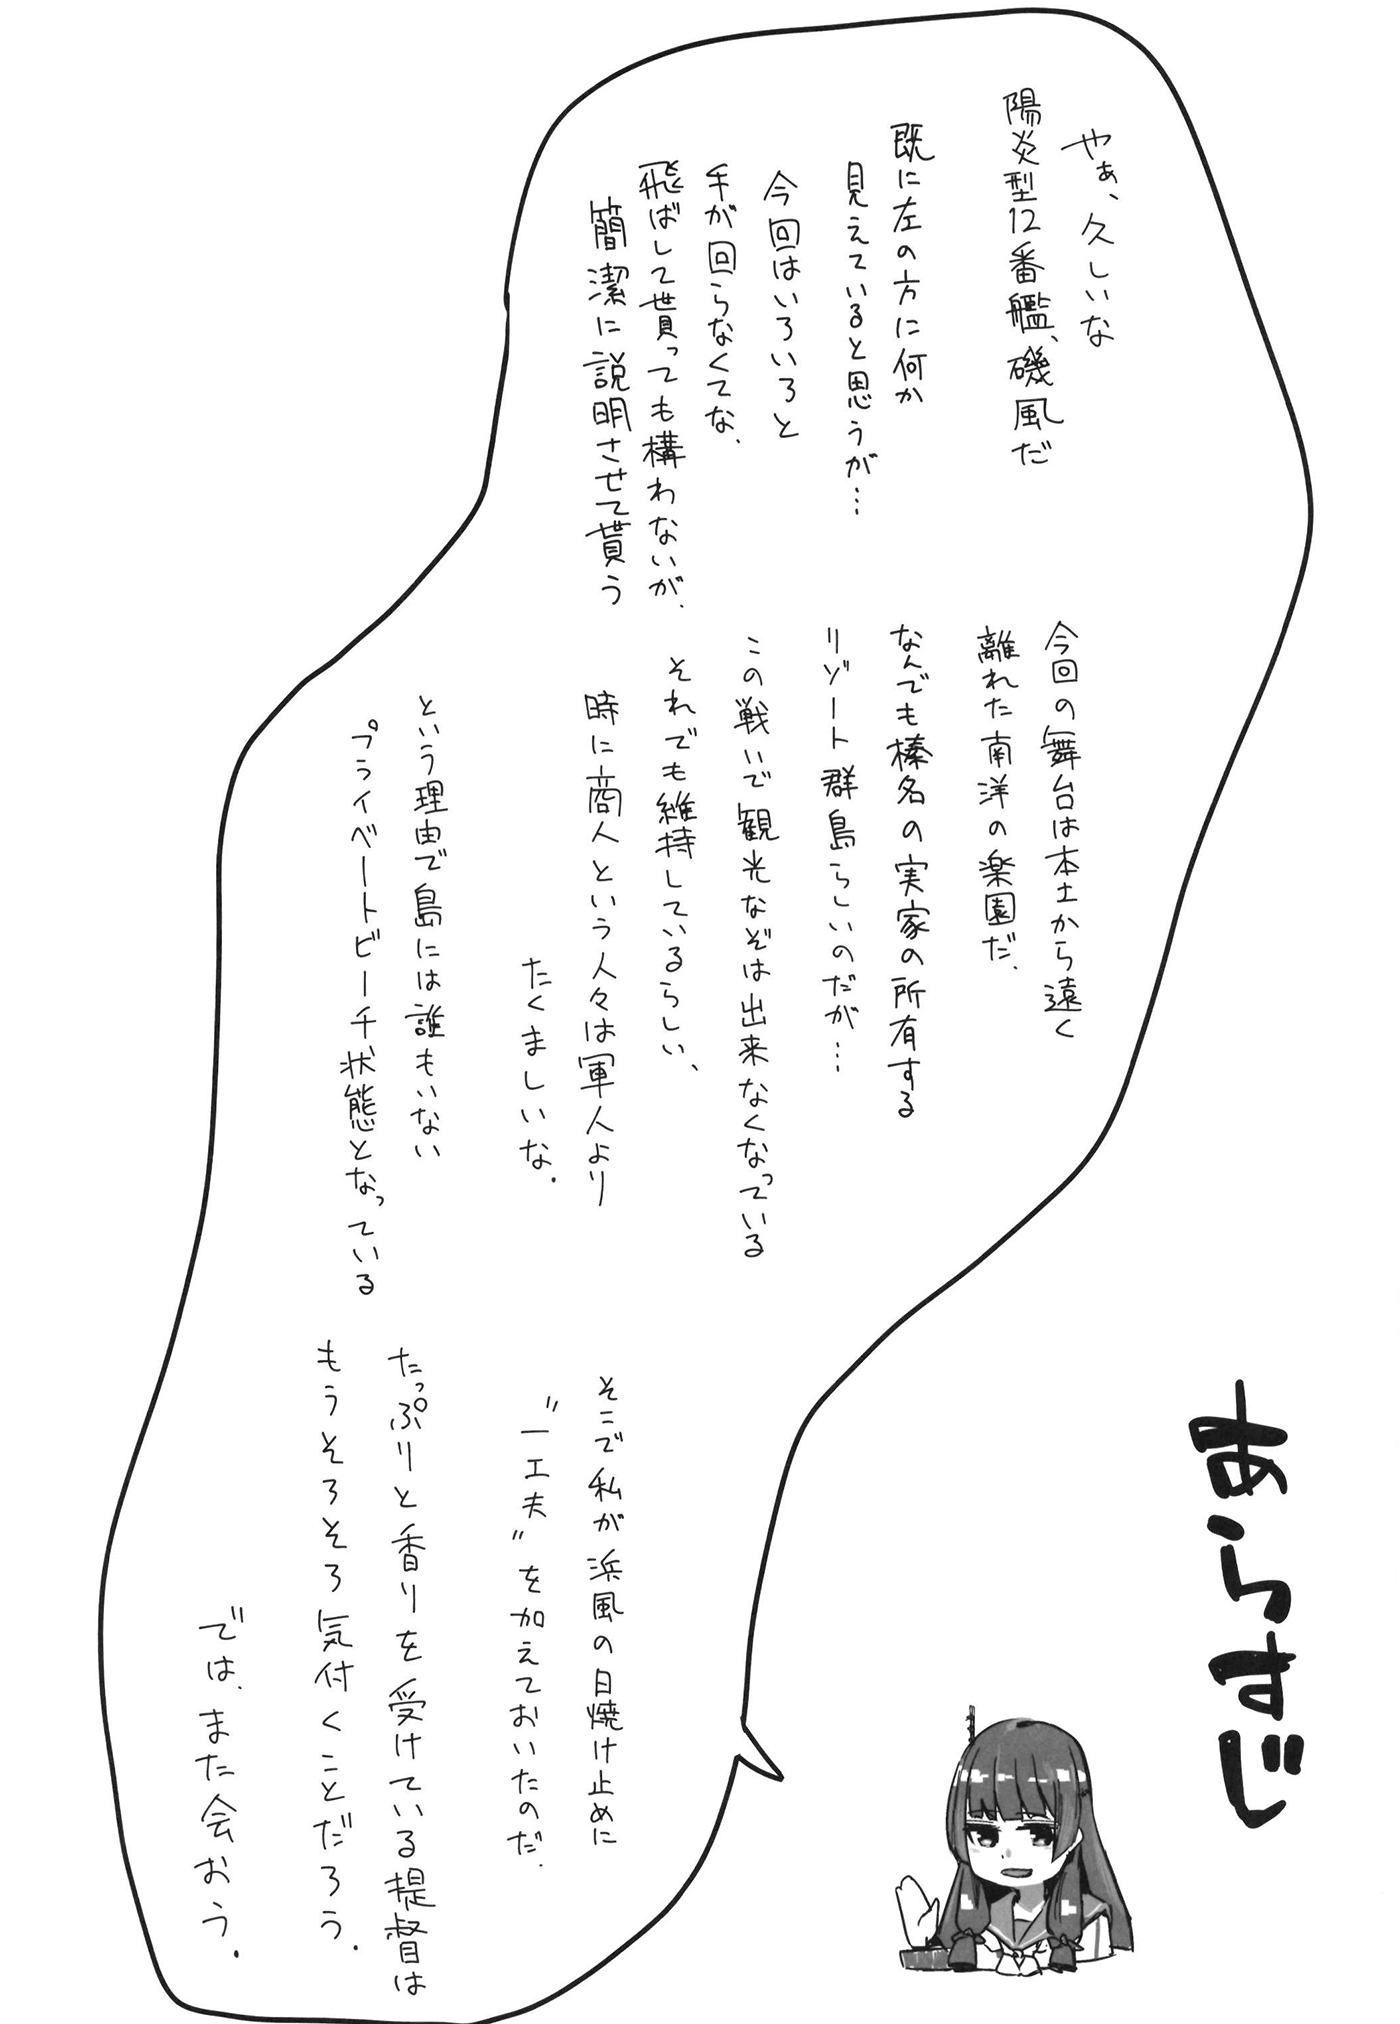 あらすじ
やぁ、久しいな
陽炎型12番艦、磯風だ
既に左の方に何か
見えていると思うが…
今回はいろいろと
手が回らなくてな、
飛ばして貰っても構わないが、
簡潔に説明させて貰う
今回の舞台は本土から遠く
離れた南洋の楽園だ、
なんでも榛名の実家の所有する
リゾート群島らしいのだが…
この戦いで観光なぞは出来なくなっている
それでも維持しているらしい、
時に商人という人々は軍人より
たくましいな.
という理由で島には誰もいない
プライベートビーチ状態となっている
そこで私が浜風の日焼け止めに
〝一工夫〟を加えておいたのだ.
たっぷりと香りを受けている提督は
もうそろそろ気付くことだろう.
では、また会おう.